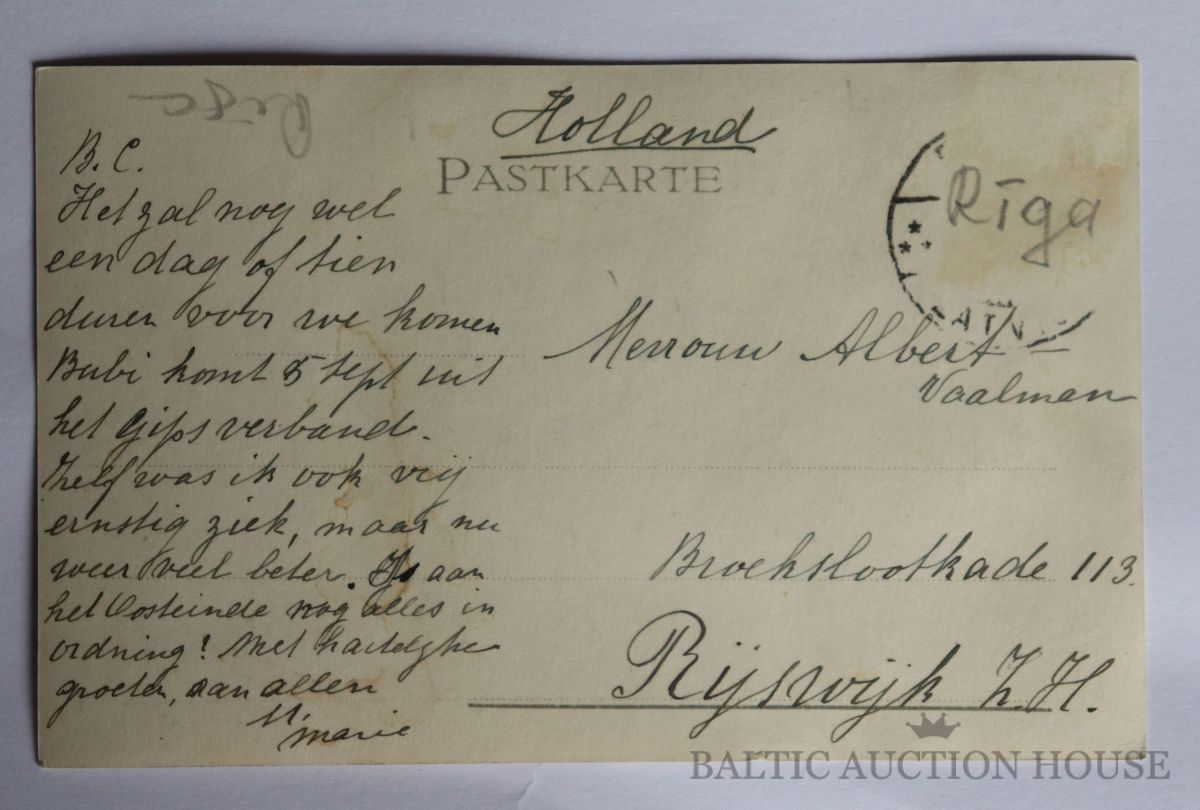 Riga
Holland
PASTKARTE
Rīga
B. C.
Het zal nog wel
een dag of tien
duren voor we komen
Bubi komt 5 sept uit
het Gipsverband.
Zelf was ik ook vrij
ernstig ziek, maar nu
weer veel beter. Is aan
het Oosteinde nog alles in
ordning! Met hartelijke
groeten, aan allen
Marie
Mevrouw Albert
Vaalman
Broekslootkade 113
Rijswijk Z. H.
BALTIC AUCTION HOUSE